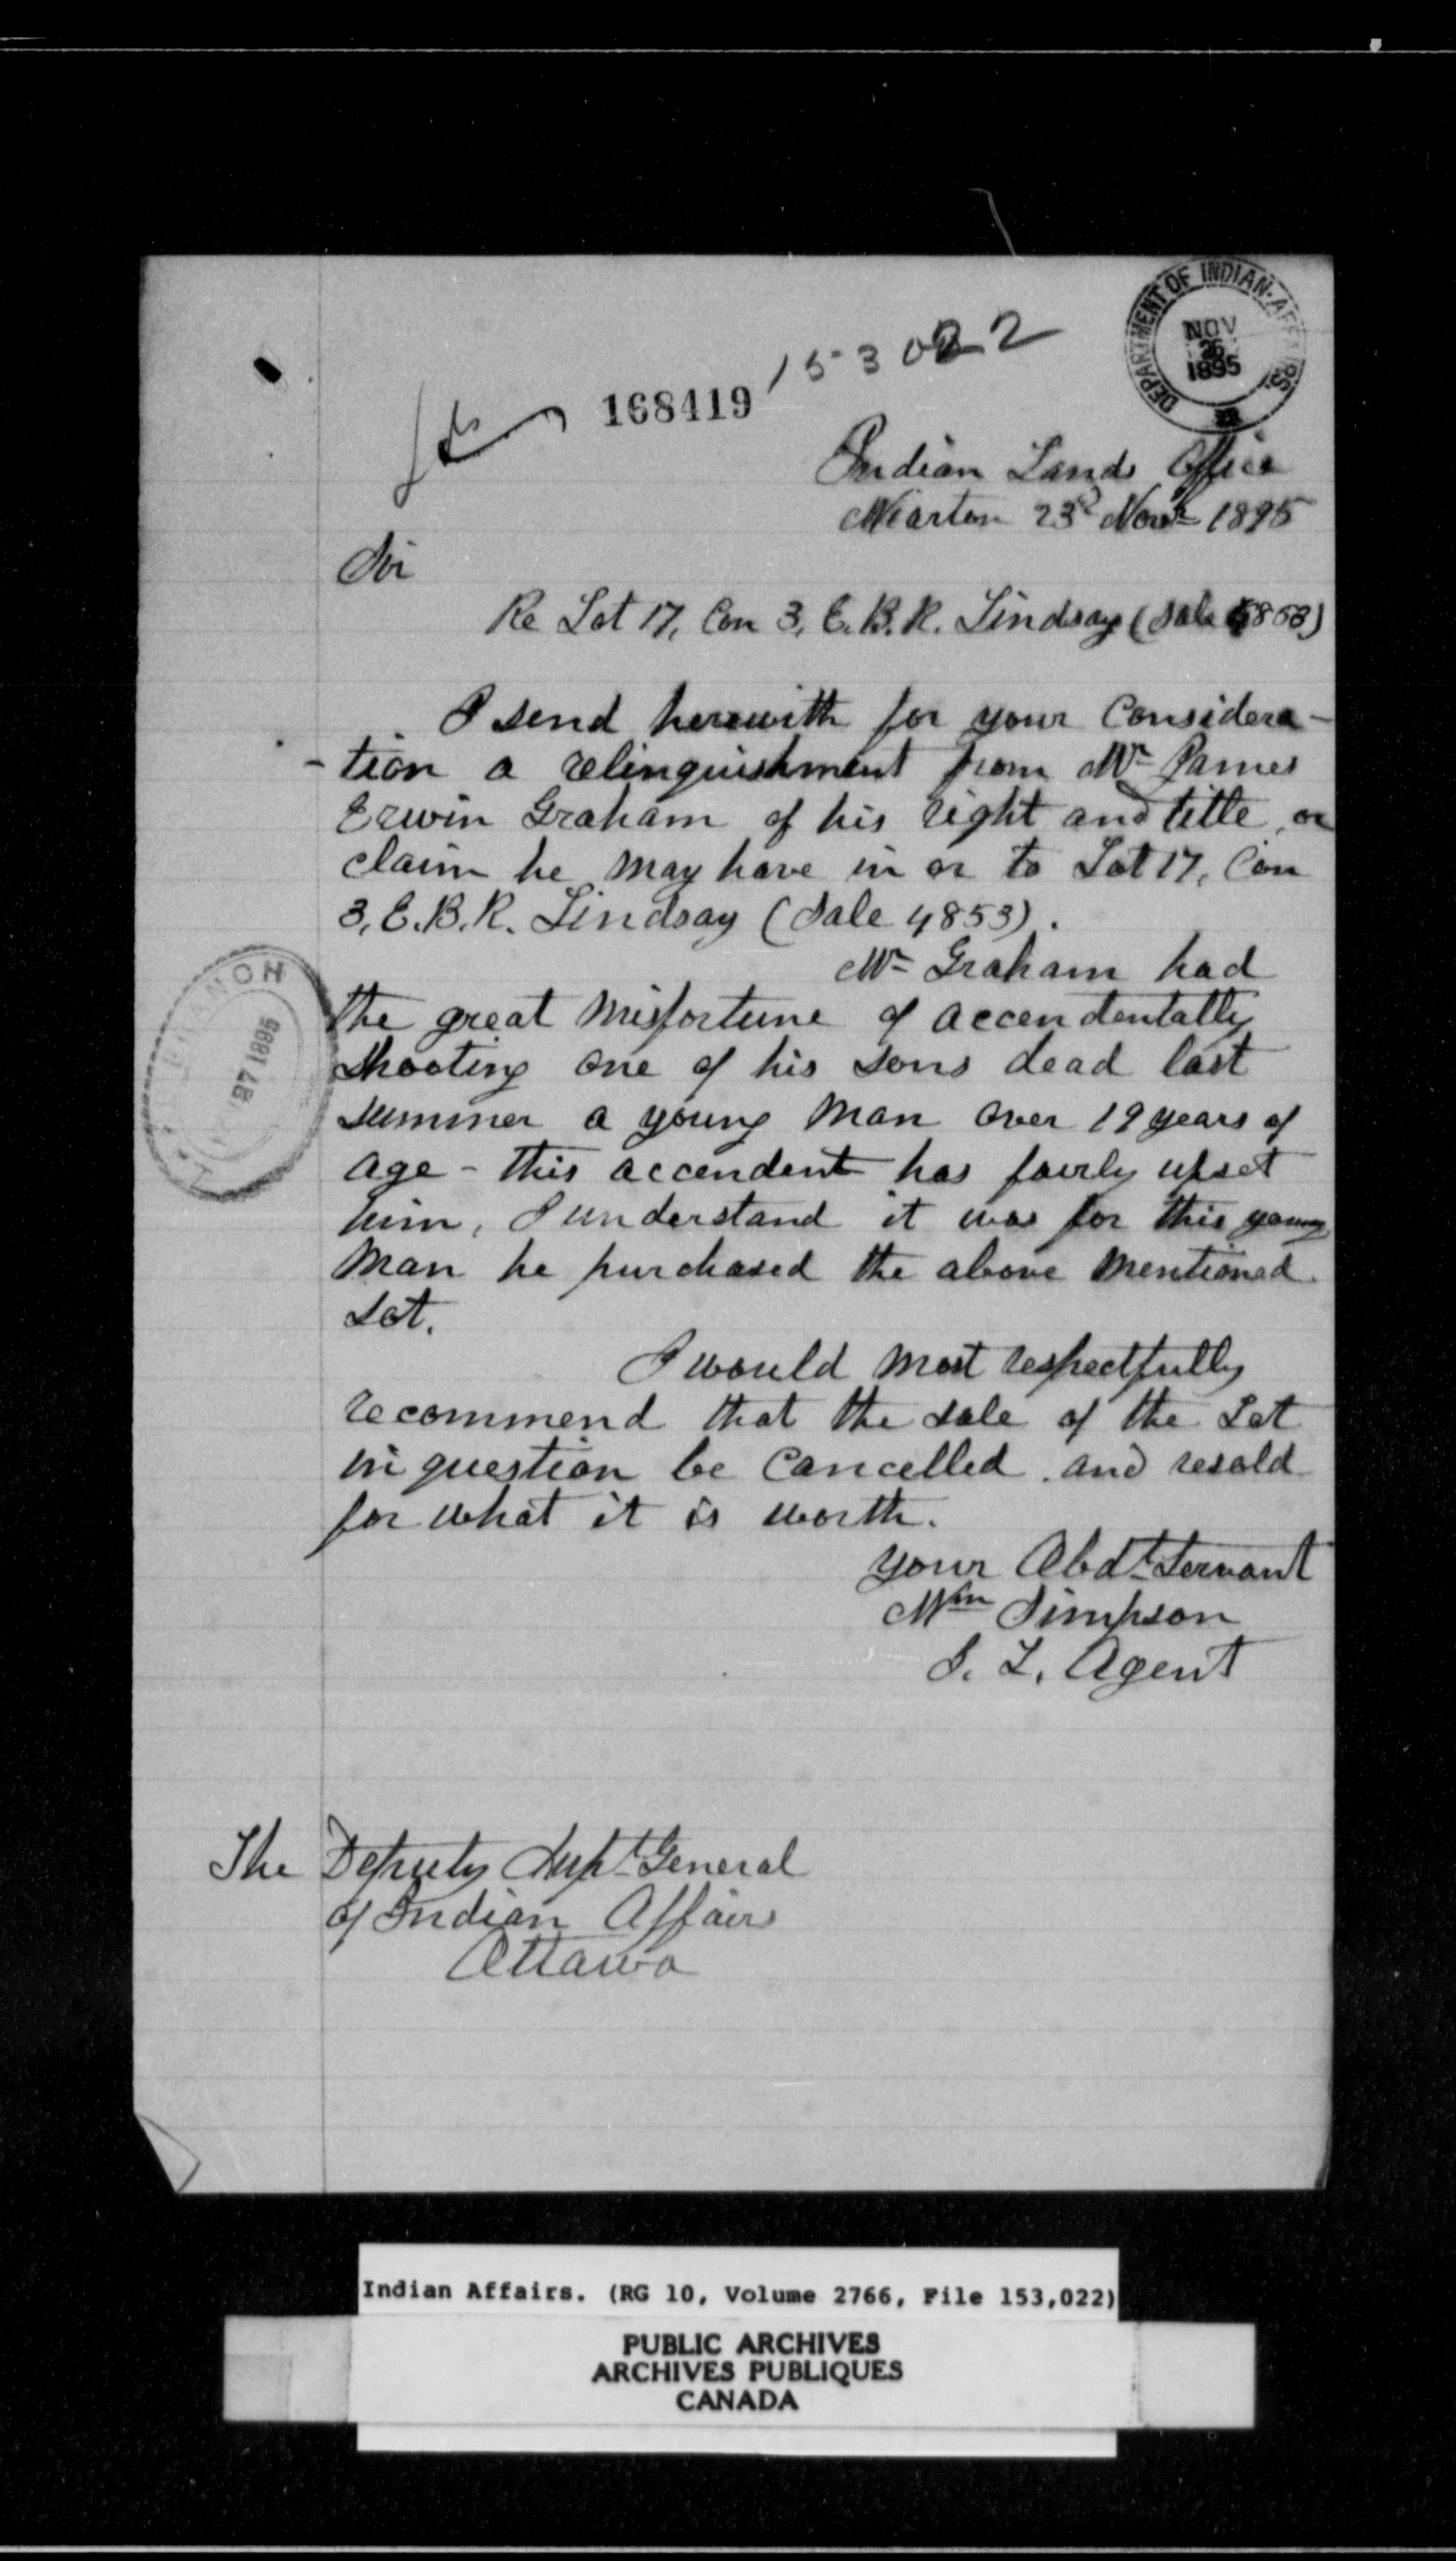 153022
168419
DEPARTMENT OF INDIAN AFFAIRS
NOV
26
1895
Indian Lands Office
Wiarton 23d Novr 1895
Sir
Re Lot 17, Con 3, E.B.R. Lindsay (Sale 4853)
I send herewith for your Considera-
-tion a relinquishment from Mr James
Erwin Graham of his right and title, or
claim he may have in or to Lot 17, Con
3, E.B.R. Lindsay (Sale 4853).
Mr Graham had
the great Misfortune of accendentally
shooting one of his sons dead last
summer a young Man over 19 years of
age - this accendent has fairly upset
him, I understand it was for this young
Man he purchased the above Mentioned
Lot.
I would Most respectfully
recommend that the sale of the Lot
in question be Cancelled and resold
for what it is worth.
your Obdt Servant
Wm Simpson
I. L. Agent
The Deputy Supt General
of Indian Affairs
Ottawa
Indian Affairs. (RG 10, Volume 2766, File 153,022)
PUBLIC ARCHIVES
ARCHIVES PUBLIQUES
CANADA